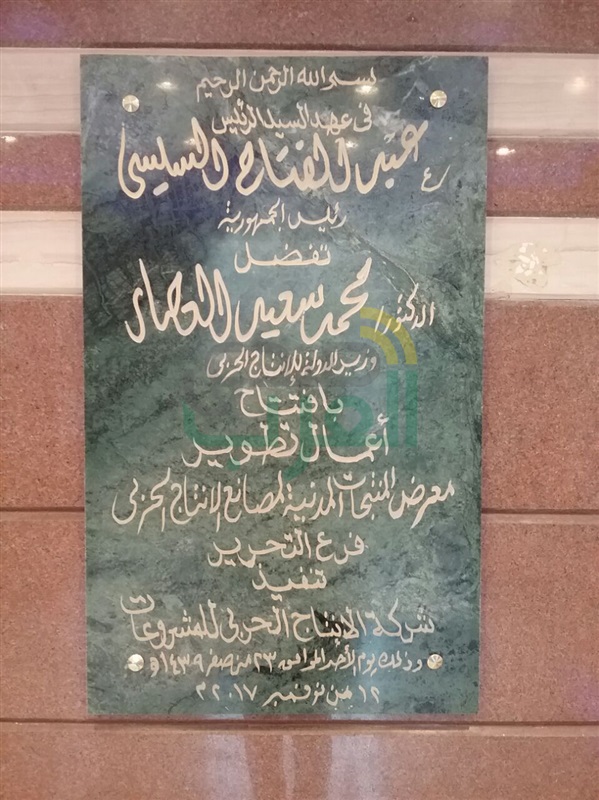 بسم الله الرحمن الرحيم
فى عهد السيد الرئيس
ع/ عبد الفتاح السيسى
رئيس الجمهورية
تفضل
الدكتور/ محمد سعيد العصار
وزير الدولة للإنتاج الحربى
بافتتاح
أعمال تطوير
معرض المنتجات المدنية لمصانع الانتاج الحربى
فرع التحرير
تنفيذ
شركة الإنتاج الحربى للمشروعات
وذلك يوم الأحد الموافق ٢٣ من صفر ١٤٣٩ هـ
١٢ من نوفمبر ٢٠١٧ م
العرب